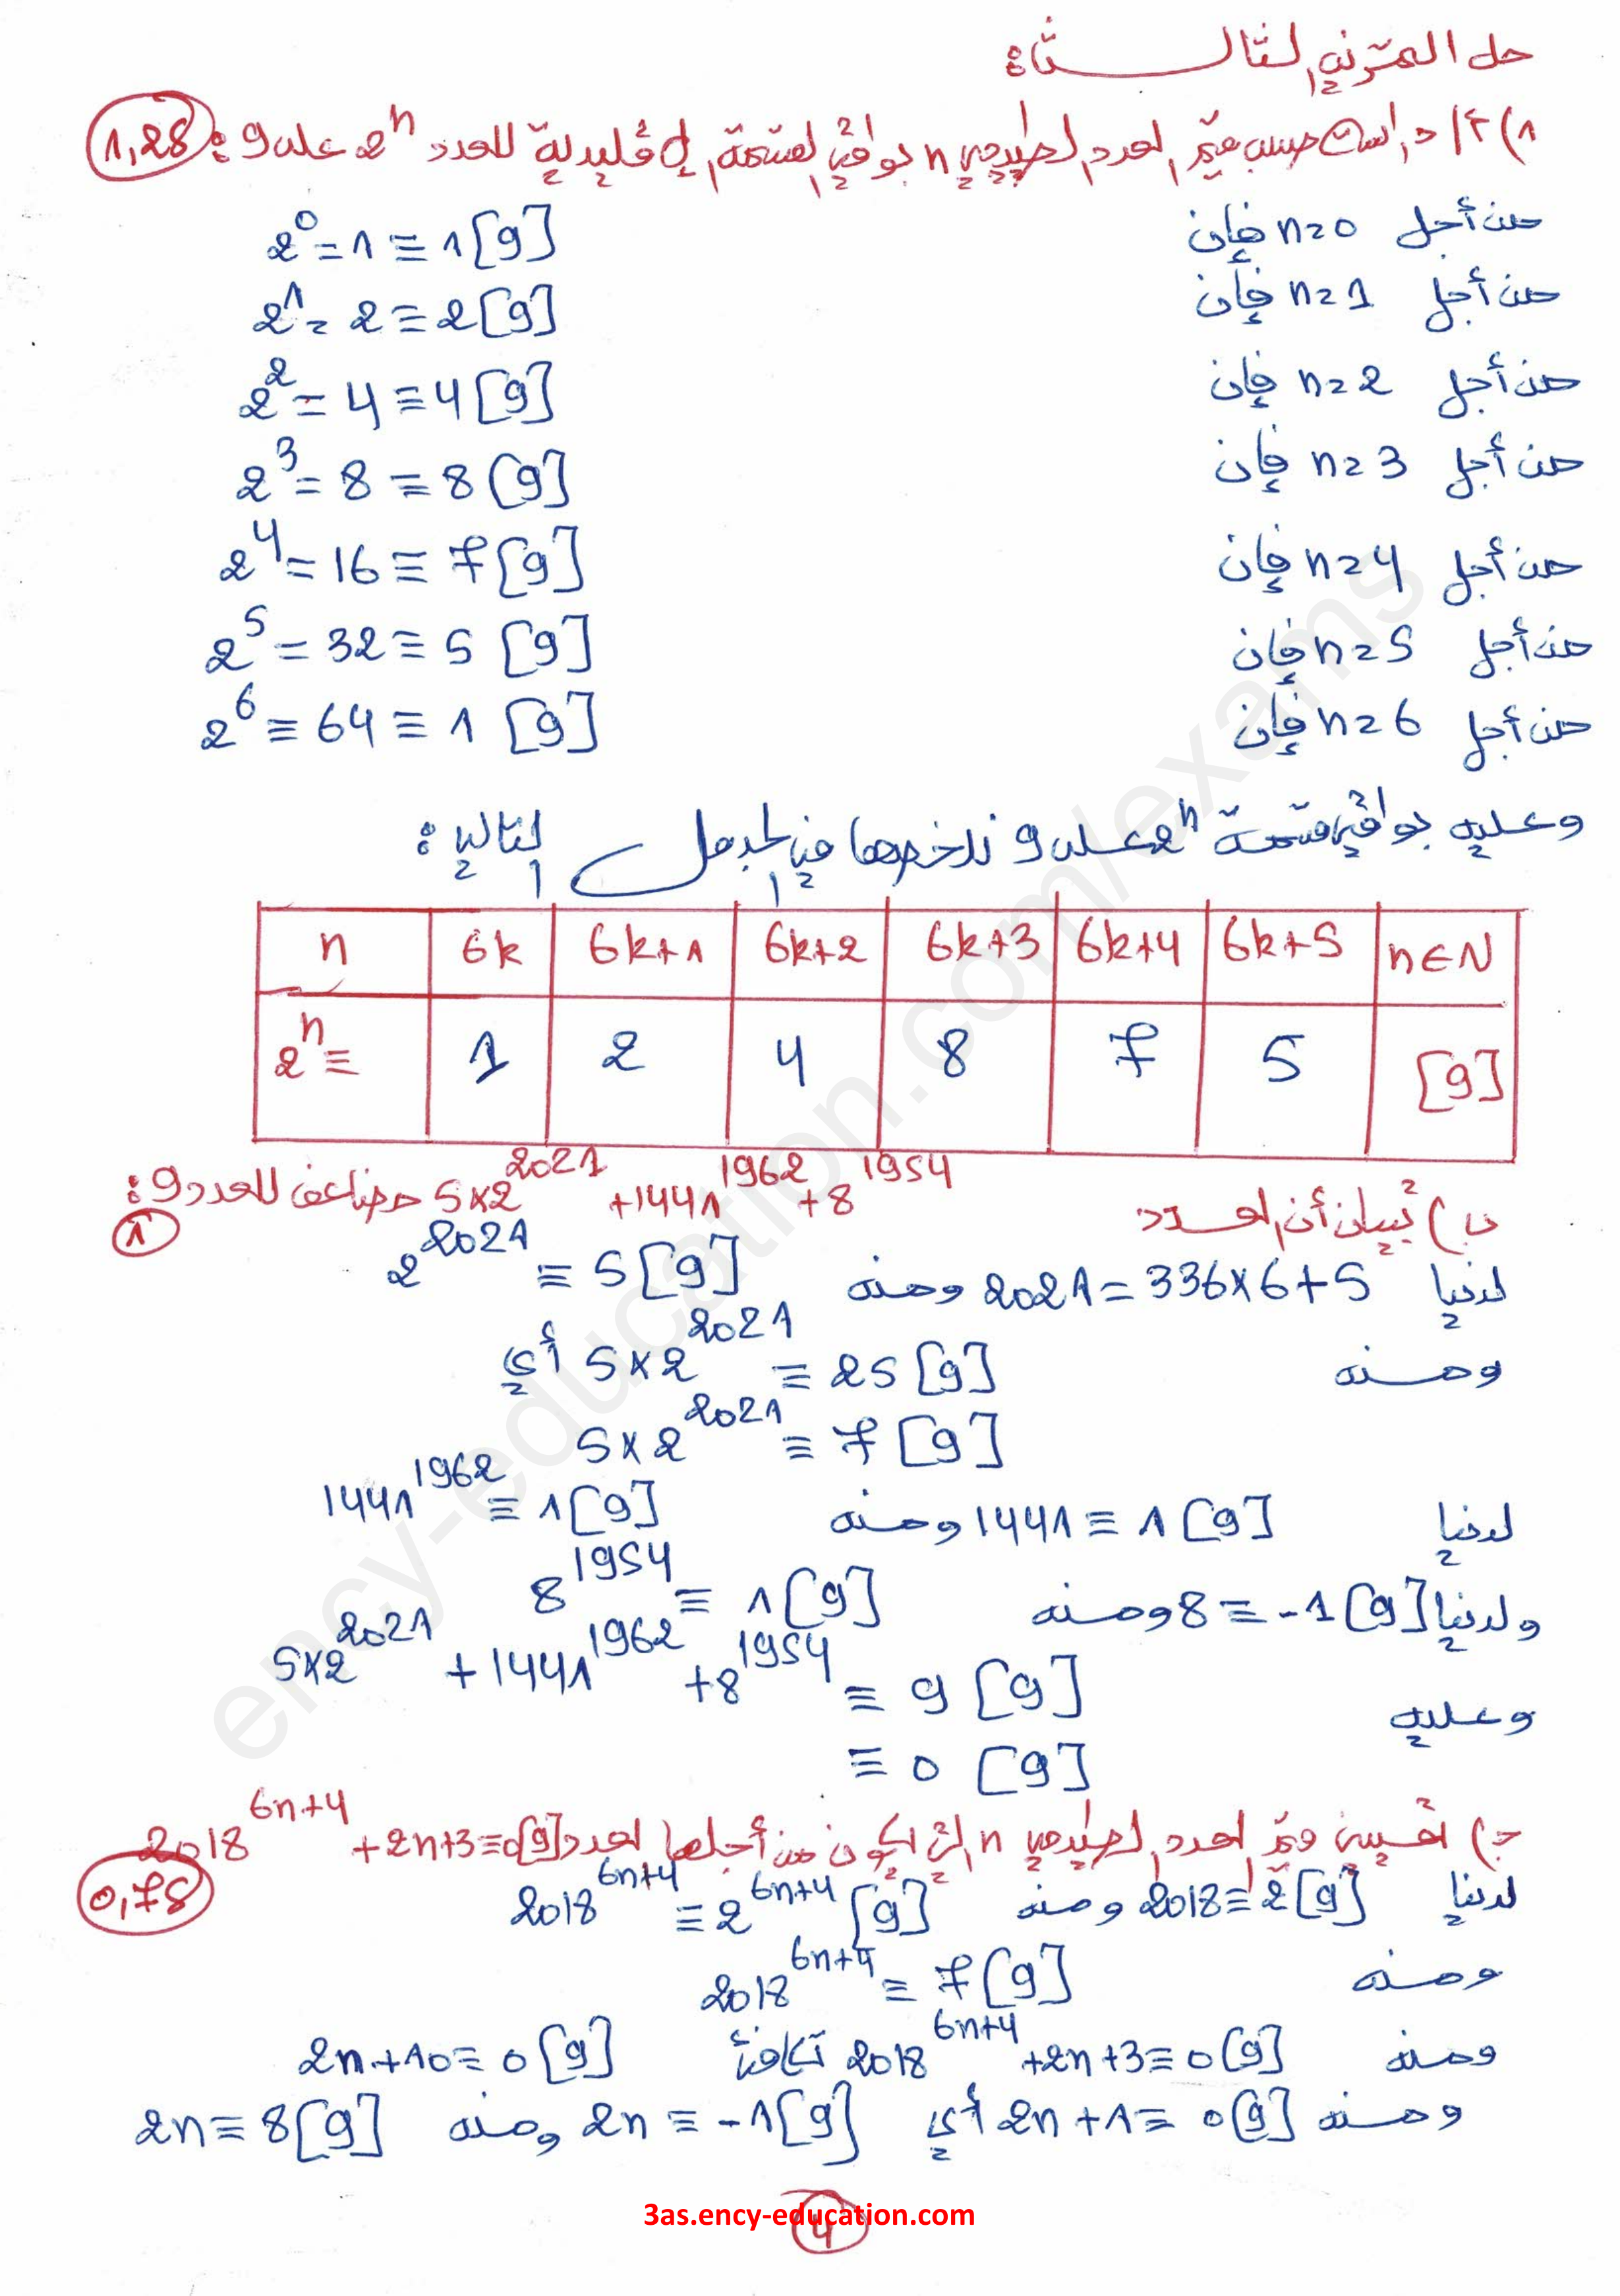 حل التمرين الثالث:
1) أ/ دراسة حسب قيم العدد الطبيعي n بواقي القسمة الإقليدية للعدد 2^n على 9: 1,25
من أجل n=0 فإن 2^0=1≡1[9]
من أجل n=1 فإن 2^1=2≡2[9]
من أجل n=2 فإن 2^2=4≡4[9]
من أجل n=3 فإن 2^3=8≡8[9]
من أجل n=4 فإن 2^4=16≡7[9]
من أجل n=5 فإن 2^5=32≡5[9]
من أجل n=6 فإن 2^6≡64≡1[9]
وعليه بواقي قسمة 2^n على 9 نلخصها في الجدول التالي:
n 6k 6k+1 6k+2 6k+3 6k+4 6k+5 n∈N
2^n≡ 1 2 4 8 7 5 [9]
ب) تبيان أن العدد 5×2^2021+1441^1962+8^1954 مضاعف للعدد 9: 1
لدينا 2021=336×6+5 ومنه 2^2021≡5[9]
ومنه 5×2^2021≡25[9] أي
5×2^2021≡7[9]
لدينا 1441≡1[9] ومنه 1441^1962≡1[9]
ولدينا 8≡-1[9] ومنه 8^1954≡1[9]
وعليه 5×2^2021+1441^1962+8^1954≡9[9]
≡0[9]
ج) تعيين قيم العدد الطبيعي n التي يكون من أجلها العدد 2018^6n+4+2n+3≡0[9] 0,75
لدينا 2018≡2[9] ومنه 2018^6n+4≡2^6n+4[9]
ومنه 2018^6n+4≡7[9]
ومنه 2018^6n+4+2n+3≡0[9] تكافئ 2n+10≡0[9]
ومنه 2n+1≡0[9] أي 2n≡-1[9] ومنه 2n≡8[9]
3as.ency-education.com
4
ency-education.com/exams